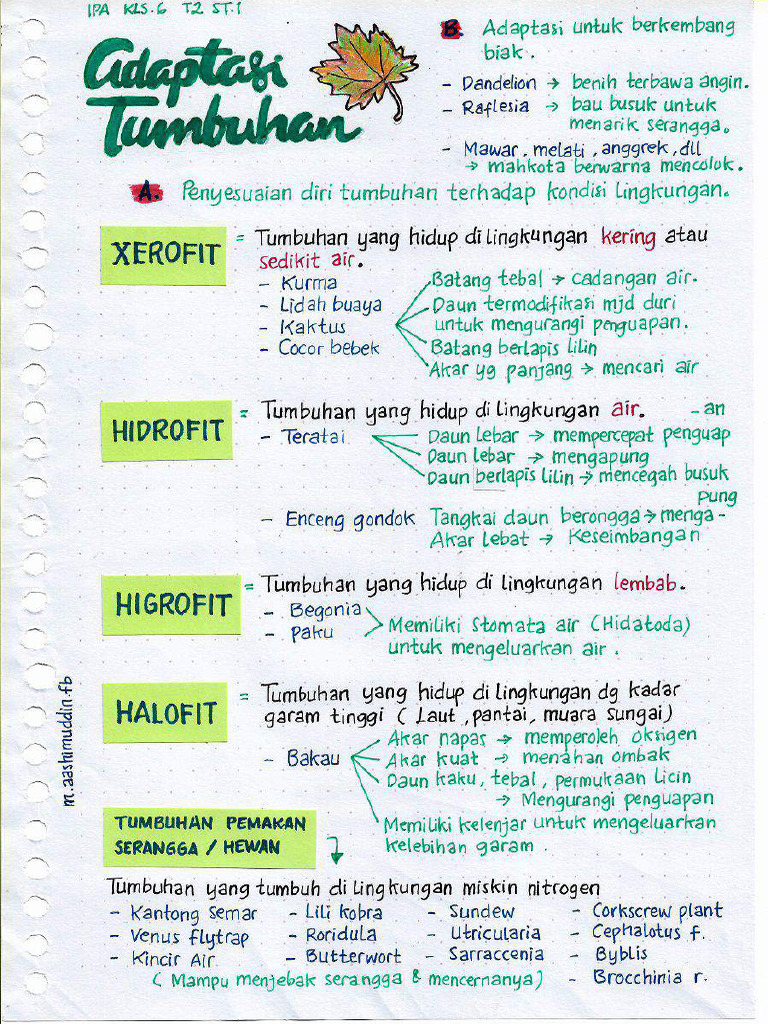 IPA KLS.6 T2 ST.1
Adaptasi
Tumbuhan
B. Adaptasi untuk berkembang
biak.
- Dandelion → benih terbawa angin.
- Raflesia → bau busuk untuk
menarik serangga.
- Mawar, melati, anggrek, dll
→ mahkota berwarna mencolok.
A. Penyesuaian diri tumbuhan terhadap kondisi lingkungan.
XEROFIT = Tumbuhan yang hidup di lingkungan kering atau
sedikit air.
- Kurma
- Lidah buaya
- Kaktus
- Cocor bebek
Batang tebal → cadangan air.
Daun termodifikasi mjd duri
untuk mengurangi penguapan.
Batang berlapis lilin
Akar yg panjang → mencari air
HIDROFIT = Tumbuhan yang hidup di lingkungan air.
- Teratai
Daun lebar → mempercepat penguap
-an
Daun lebar → mengapung
Daun berlapis lilin → mencegah busuk
- Enceng gondok Tangkai daun berongga → menga-
pung
Akar lebat → Keseimbangan
HIGROFIT = Tumbuhan yang hidup di lingkungan lembab.
- Begonia
- Paku
Memiliki Stomata air (Hidatoda)
untuk mengeluarkan air.
HALOFIT = Tumbuhan yang hidup di lingkungan dg kadar
garam tinggi (Laut, pantai, muara sungai)
- Bakau
Akar napas → memperoleh oksigen
Akar kuat → menahan ombak
Daun kaku, tebal, permukaan licin
→ Mengurangi penguapan
Memiliki kelenjar untuk mengeluarkan
kelebihan garam.
TUMBUHAN PEMAKAN
SERANGGA / HEWAN
Tumbuhan yang tumbuh di lingkungan miskin nitrogen
- Kantong Semar - Lili kobra - Sundew - Corkscrew plant
- Venus flytrap - Roridula - Utricularia - Cephalotus f.
- Kincir Air - Butterwort - Sarraccenia - Byblis
(Mampu menjebak serangga & mencernanya) - Brocchinia r.
m.aashimuddin.fb